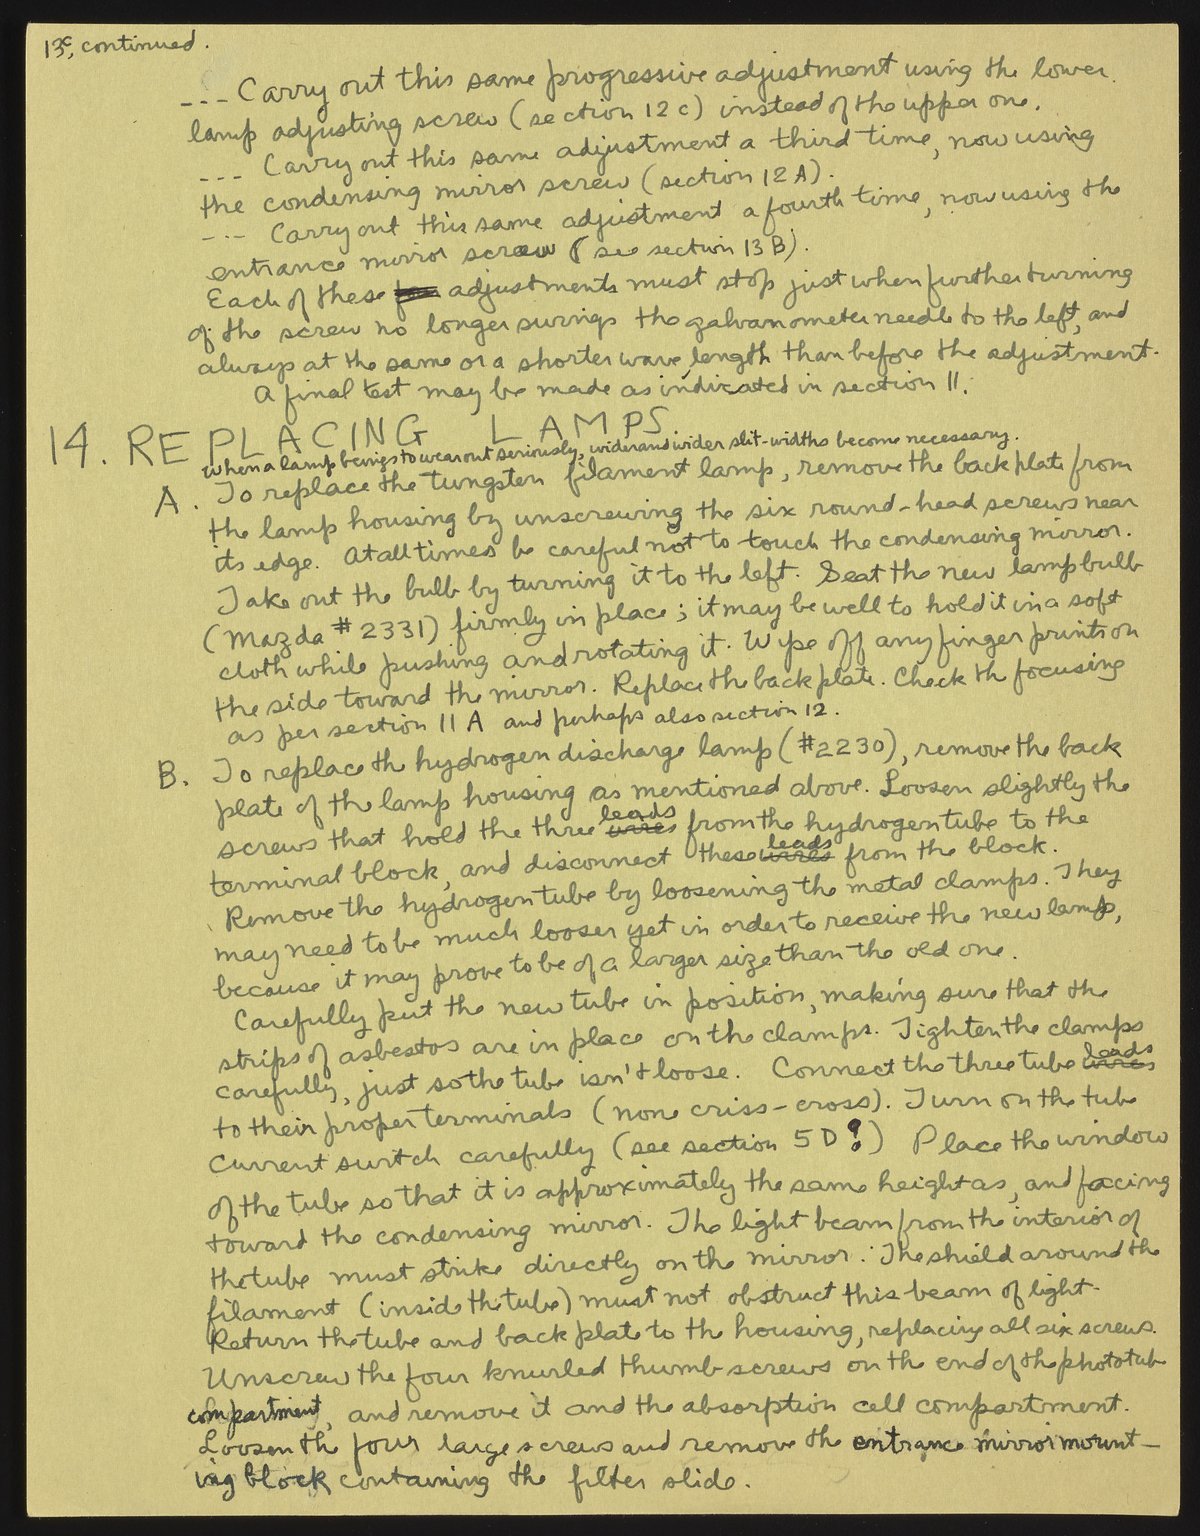 13c, continued.
--- Carry out this same progressive adjustment using the lower
lamp adjusting screw (section 12 c) instead of the upper one.
--- Carry out this same adjustment a third time, now using
the condensing mirror screw (section 12 A).
--- Carry out this same adjustment a fourth time, now using the
entrance mirror screw (see section 13 B).
Each of these adjustments must stop just when further turning
of the screw no longer swings the galvanometer needle to the left, and
always at the same or a shorter wave length than before the adjustment.
A final test may be made as indicated in section 11.
14. REPLACING LAMPS
When a lamp begins to wear out seriously, wider and wider slit-widths become necessary.
A. To replace the tungsten filament lamp, remove the back plate from
the lamp housing by unscrewing the six round-head screws near
its edge. At all times be careful not to touch the condensing mirror.
Take out the bulb by turning it to the left. Seat the new lamp bulb
(Mazda # 2331) firmly in place; it may be well to hold it in a soft
cloth while pushing and rotating it. Wipe off any finger prints on
the side toward the mirror. Replace the back plate. Check the focusing
as per section 11 A and perhaps also section 12.
B. To replace the hydrogen discharge lamp (#2230), remove the back
plate of the lamp housing as mentioned above. Loosen slightly the
screws that hold the three wires leads from the hydrogen tube to the
terminal block, and disconnect these wires leads from the block.
Remove the hydrogen tube by loosening the metal clamps. They
may need to be much looser yet in order to receive the new lamp,
because it may prove to be of a larger size than the old one.
Carefully put the new tube in position, making sure that the
strips of asbestos are in place on the clamps. Tighten the clamps
carefully, just so the tube isn't loose. Connect the three tube wires leads
to their proper terminals (none criss-cross). Turn on the tube
current switch carefully (see section 5 D ?) Place the window
of the tube so that it is approximately the same height as, and facing
toward the condensing mirror. The light beam from the interior of
the tube must strike directly on the mirror. The shield around the
filament (inside the tube) must not obstruct this beam of light.
Return the tube and back plate to the housing, replacing all six screws.
Unscrew the four knurled thumb-screws on the end of the phototube
compartment, and remove it and the absorption cell compartment.
Loosen the four large screws and remove the entrance mirror mount-
ing block containing the filter slide.